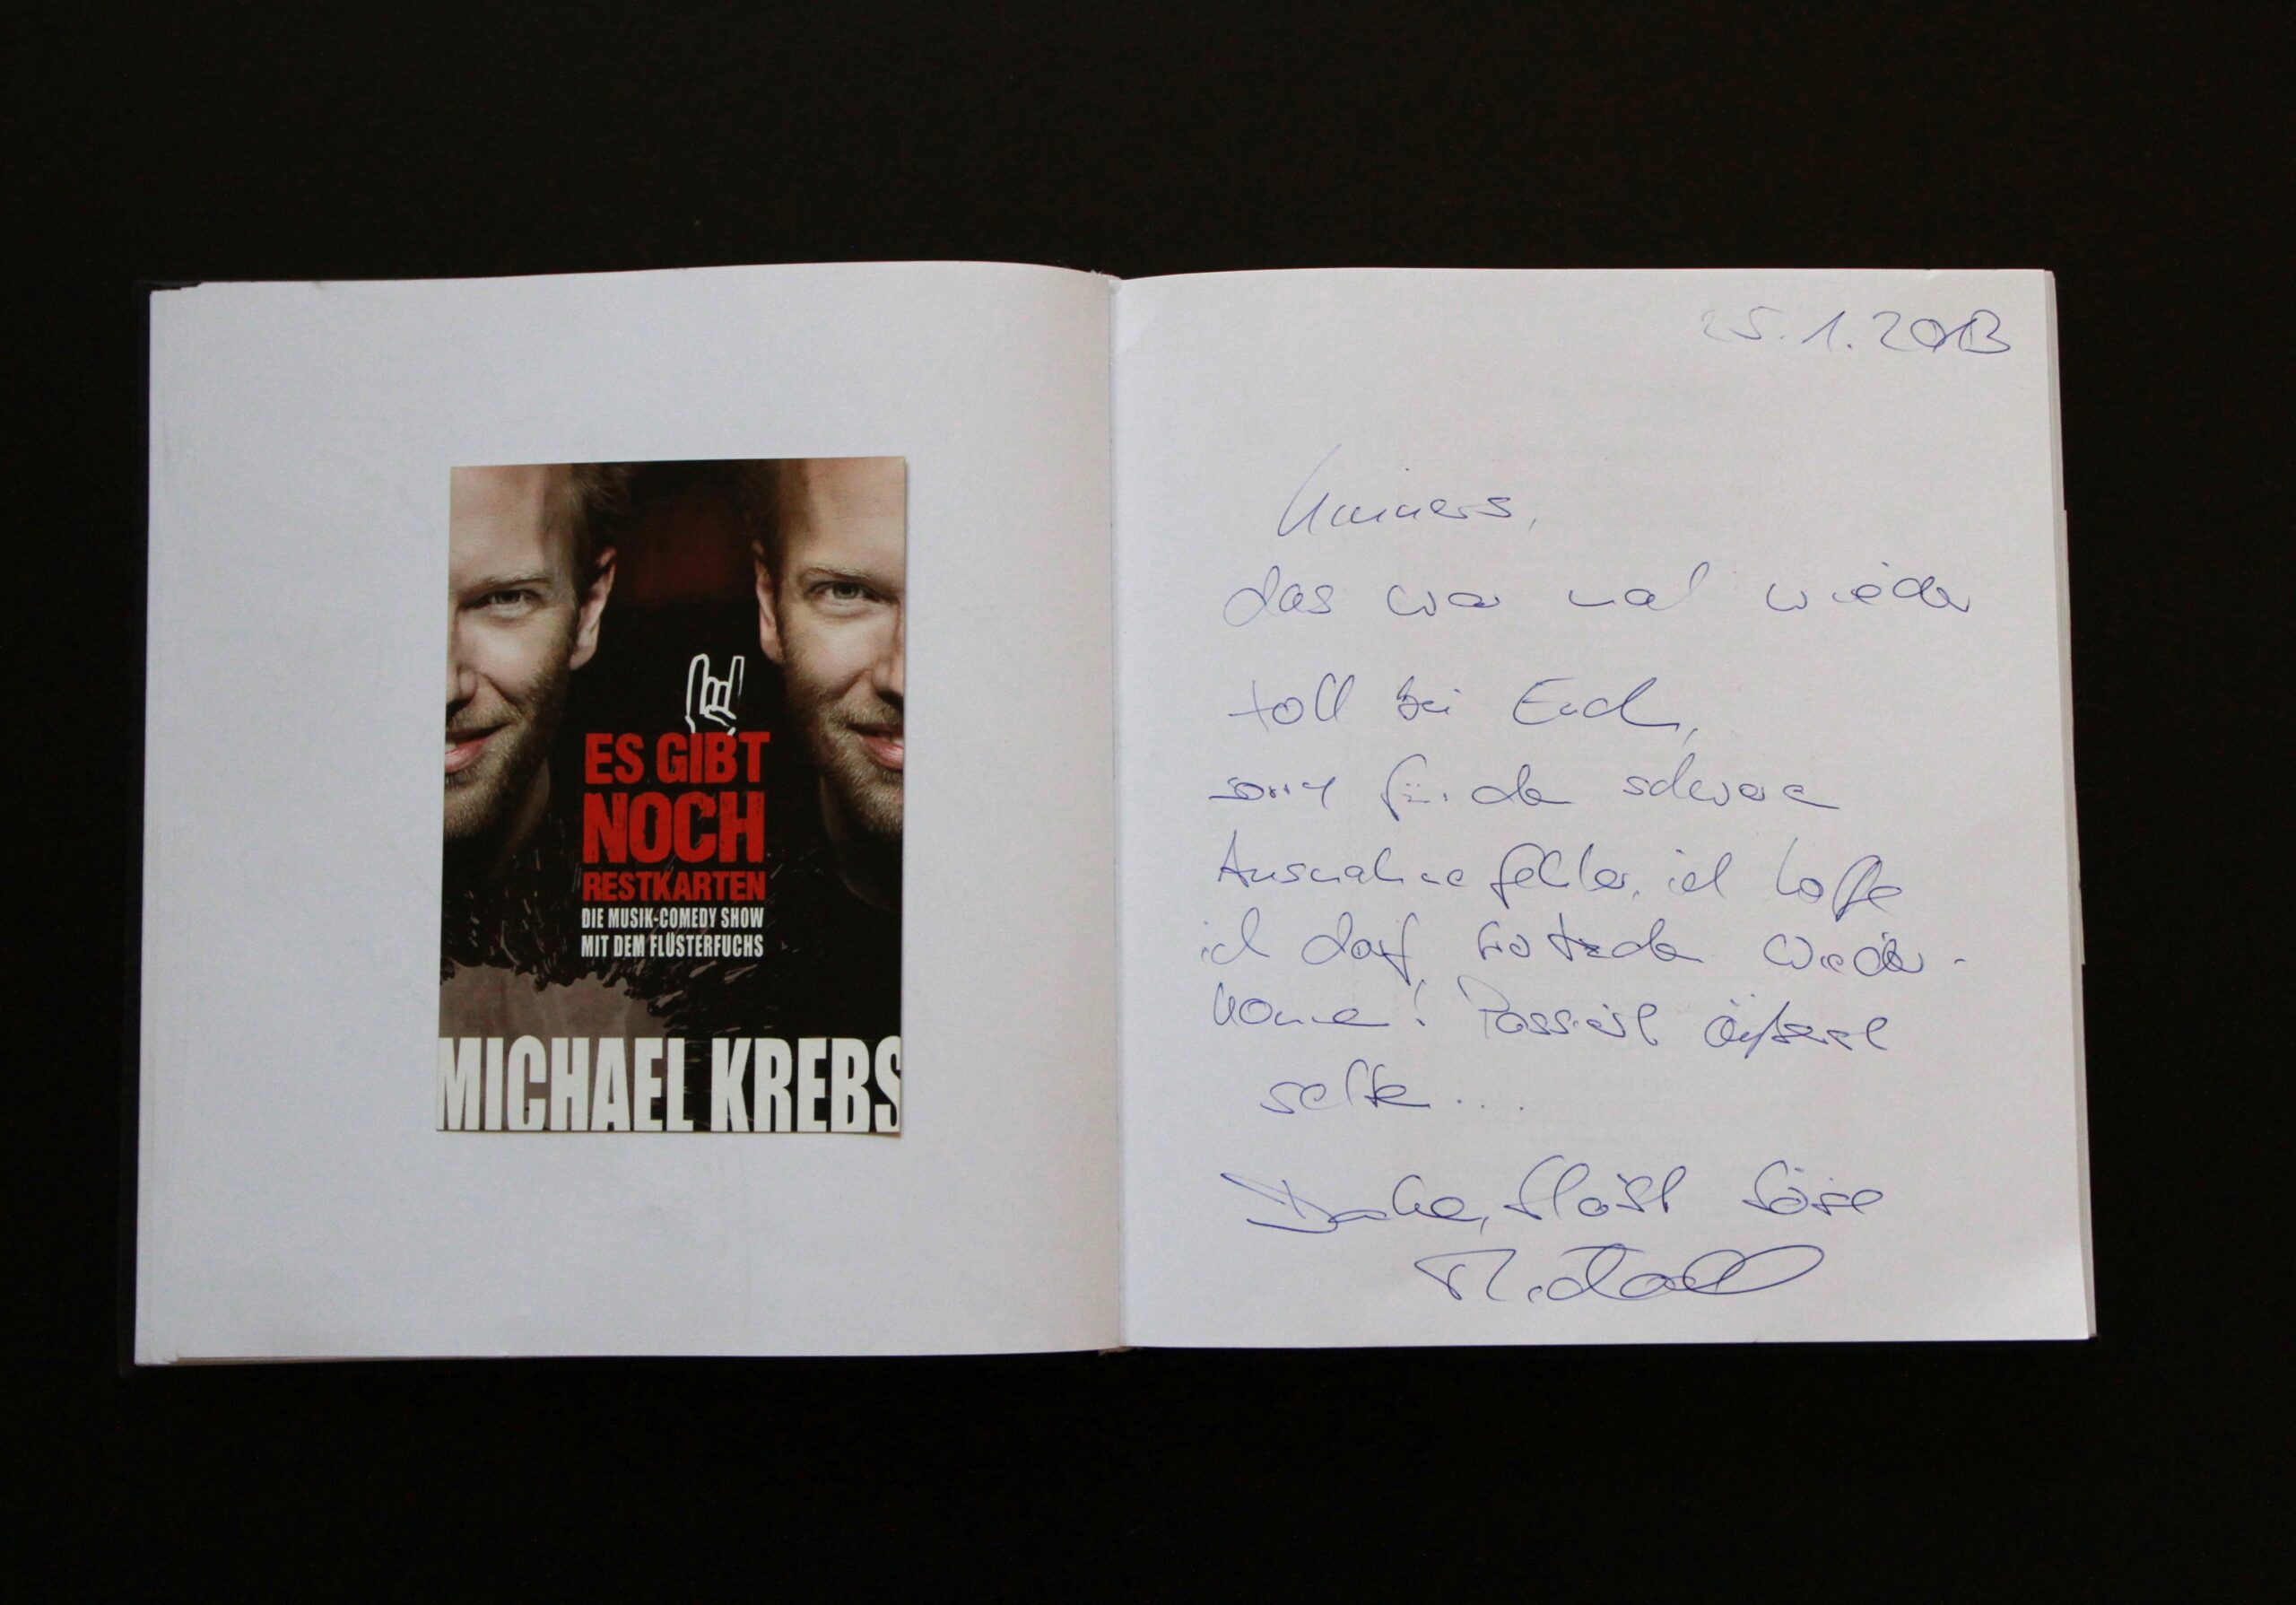 ES GIBT
NOCH
RESTKARTEN
DIE MUSIK-COMEDY SHOW
MIT DEM FLÜSTERFUCHS
MICHAEL KREBS
25.1.2013
das war mal wieder
toll bei Euch,
sorry für den schweren
Ausnahmefehler, ich hoffe
ich darf trotzdem wieder-
kommen! Passiert äußerst
selten...
Danke, bleibt böse